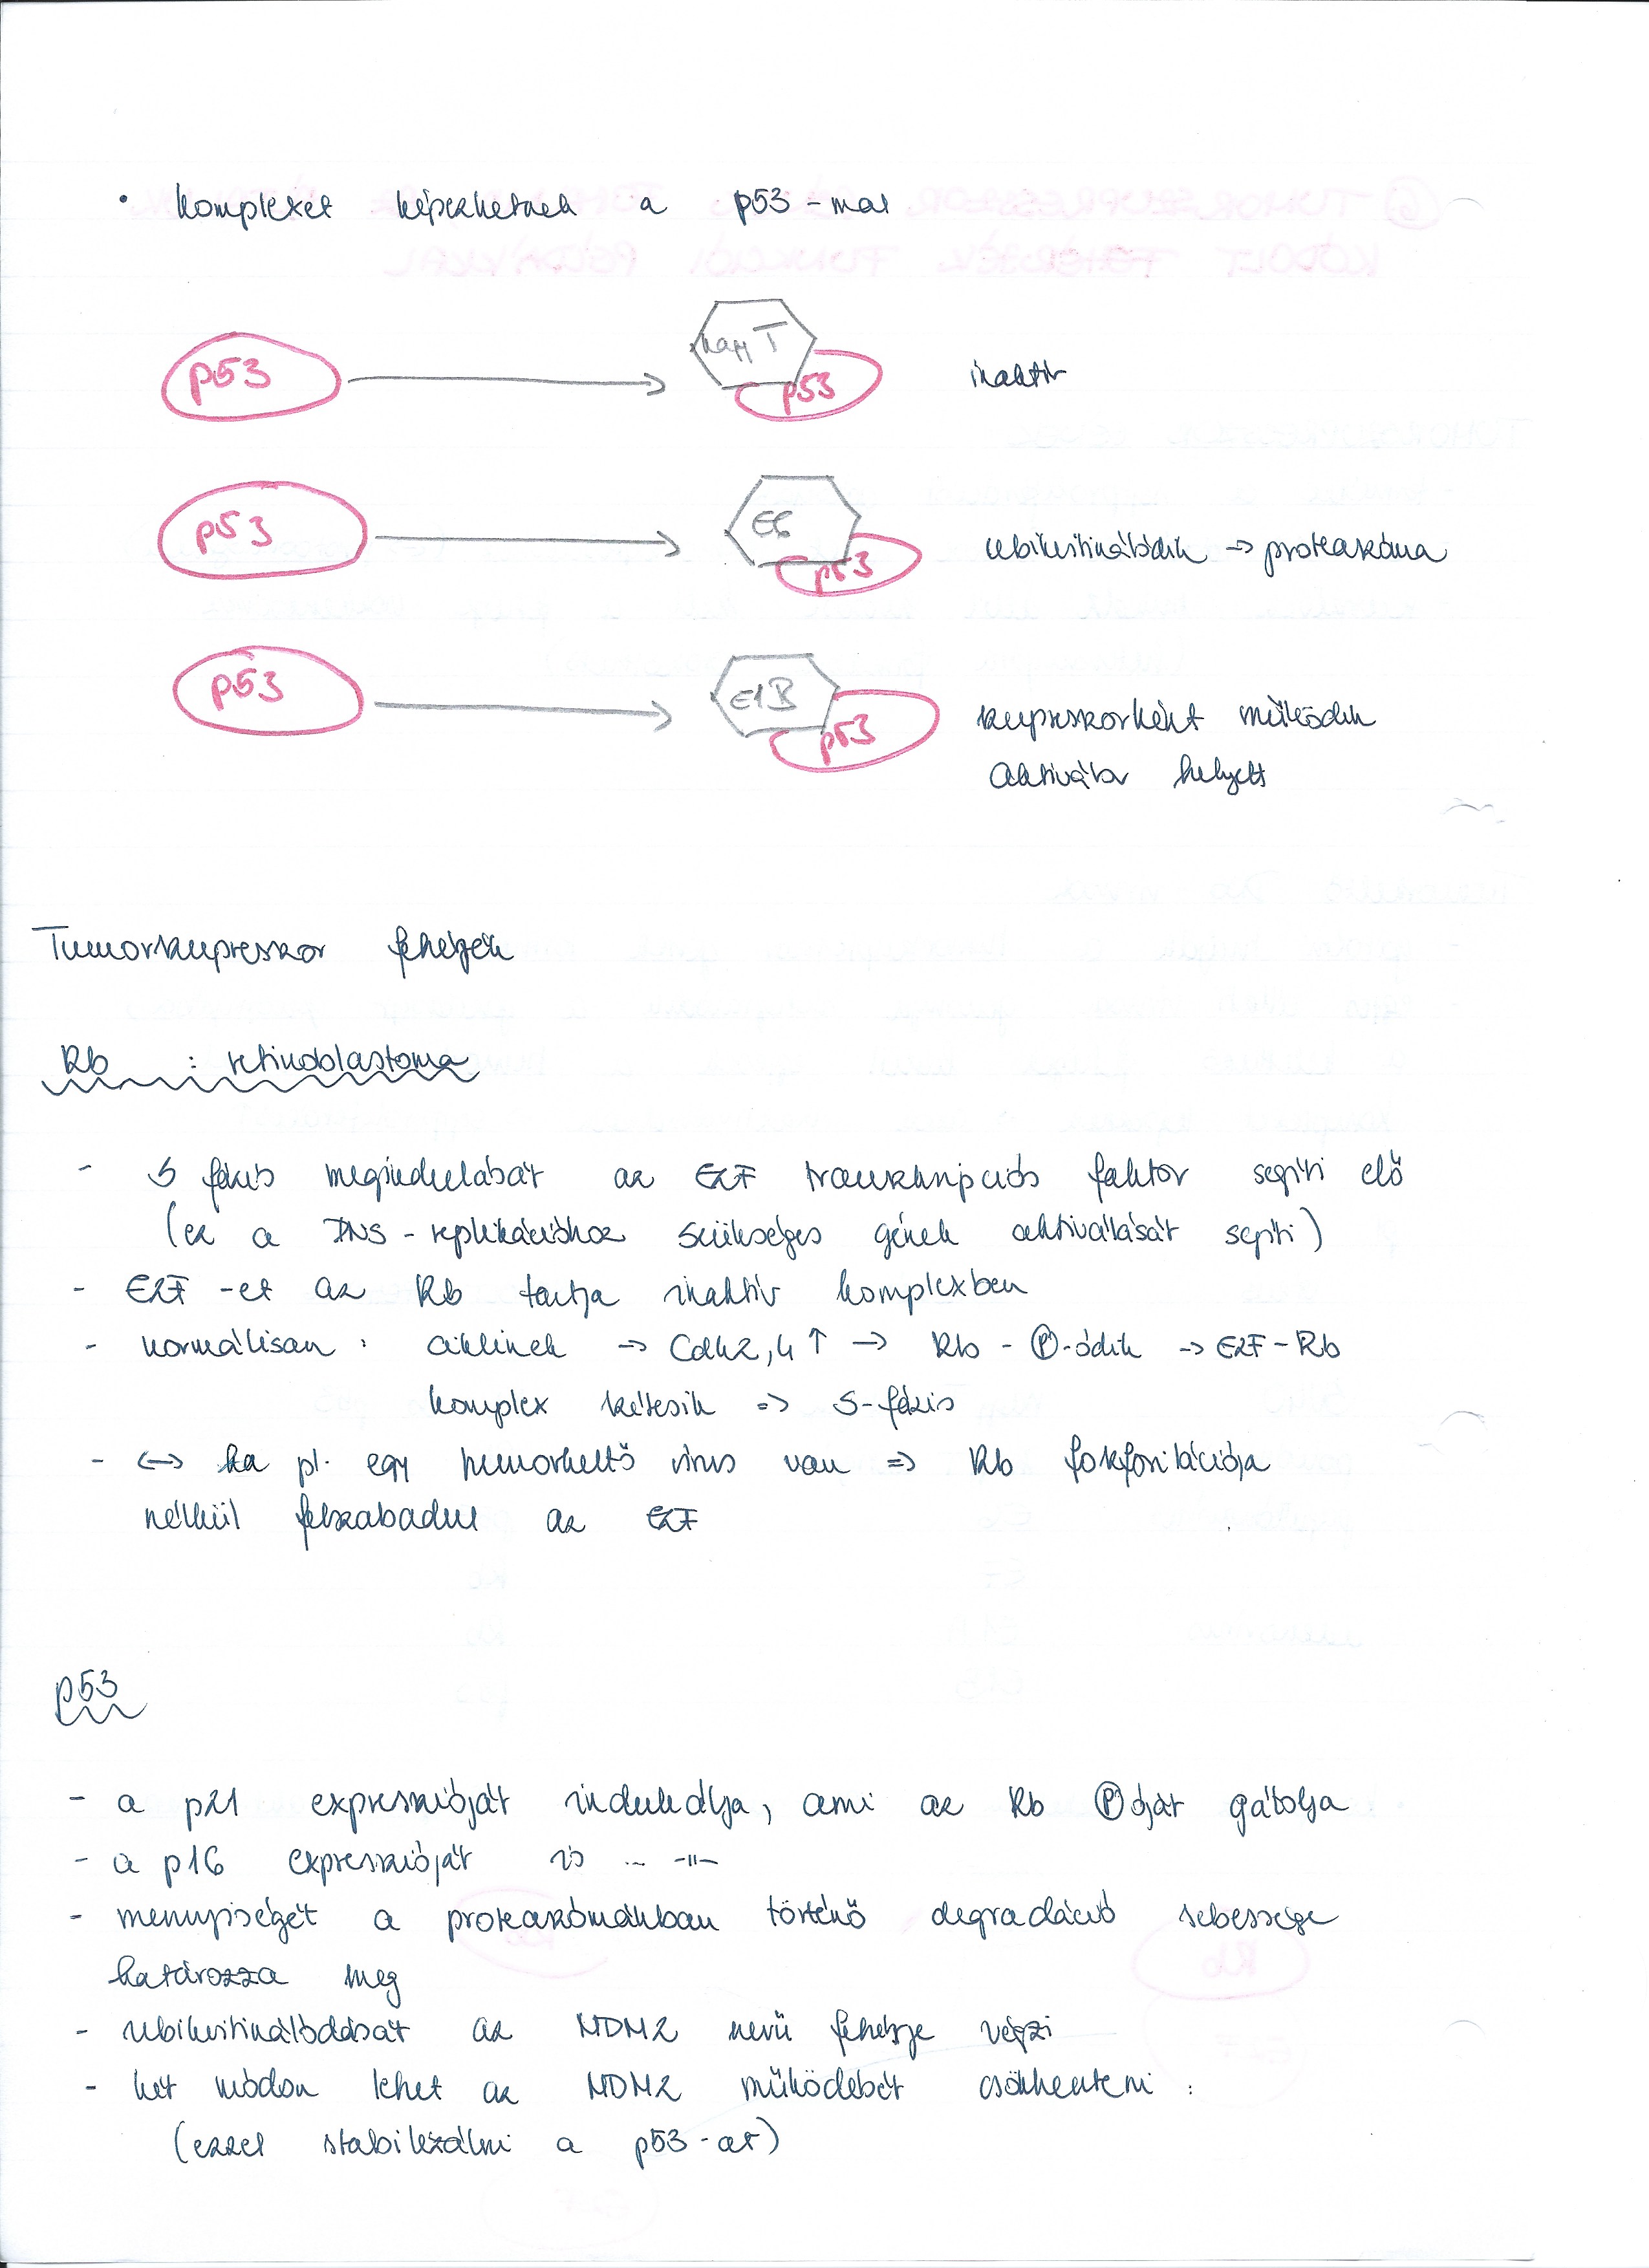 • komplexet képezhetnek a p53-mal
p53 nagy T p53 inaktív
p53 E6 p53 ubikvitinálódik → proteaszóma
p53 E1B p53 szupresszorként működik
aktivátor helyett
Tumorszupresszor fehérjék
Rb : retinoblastoma
- S fázis megindulását az E2F transzkripciós faktor segíti elő
(ez a DNS-replikációhoz szükséges gének aktiválását segíti)
- E2F-et az Rb tartja inaktív komplexben
- normálisan : ciklinek → Cdk2,4 ↑ → Rb - Ⓟ-ódik → E2F-Rb
komplex szétesik => S-fázis
- <-> ha pl. egy tumorkeltő vírus van => Rb foszforilációja
nélkül felszabadul az E2F
p53
- a p21 expresszióját indukálja, ami az Rb Ⓟ-óját gátolja
- a p16 expresszióját is ... -||-
- mennyiségét a proteaszómákban történő degradáció sebessége
határozza meg
- ubikvitinálódását az MDM2 nevű fehérje végzi
- két módon lehet az MDM2 működését csökkenteni :
(ezzel stabilizálni a p53-at)